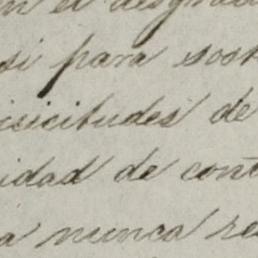 en el desgrac
si para sost
isicitudes de
idad de cont
a nunca re